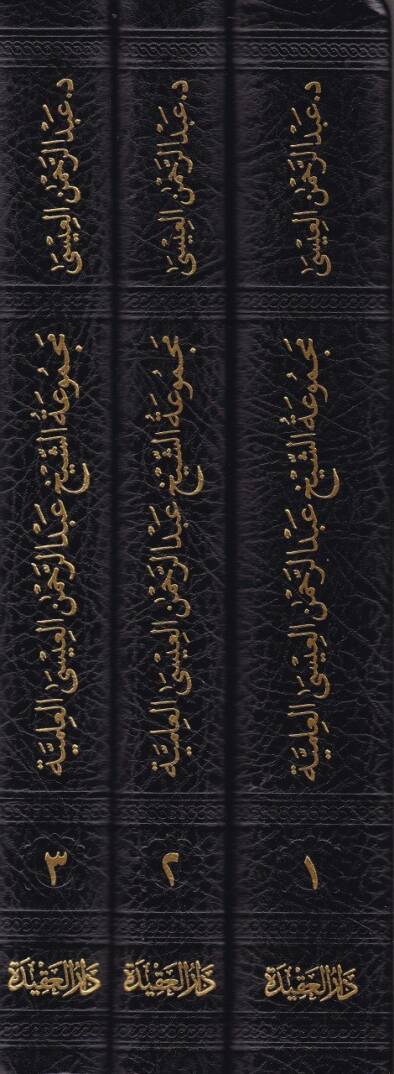 د. عَبْدُ الرَّحْمٰنِ العِيْسَى
مَجْمُوعَةُ الشَّيْخِ عَبْدِ الرَّحْمٰنِ العِيْسَى العِلْمِيَّة
١
دَارُ العَقِيْدَة
د. عَبْدُ الرَّحْمٰنِ العِيْسَى
مَجْمُوعَةُ الشَّيْخِ عَبْدِ الرَّحْمٰنِ العِيْسَى العِلْمِيَّة
٢
دَارُ العَقِيْدَة
د. عَبْدُ الرَّحْمٰنِ العِيْسَى
مَجْمُوعَةُ الشَّيْخِ عَبْدِ الرَّحْمٰنِ العِيْسَى العِلْمِيَّة
٣
دَارُ العَقِيْدَة